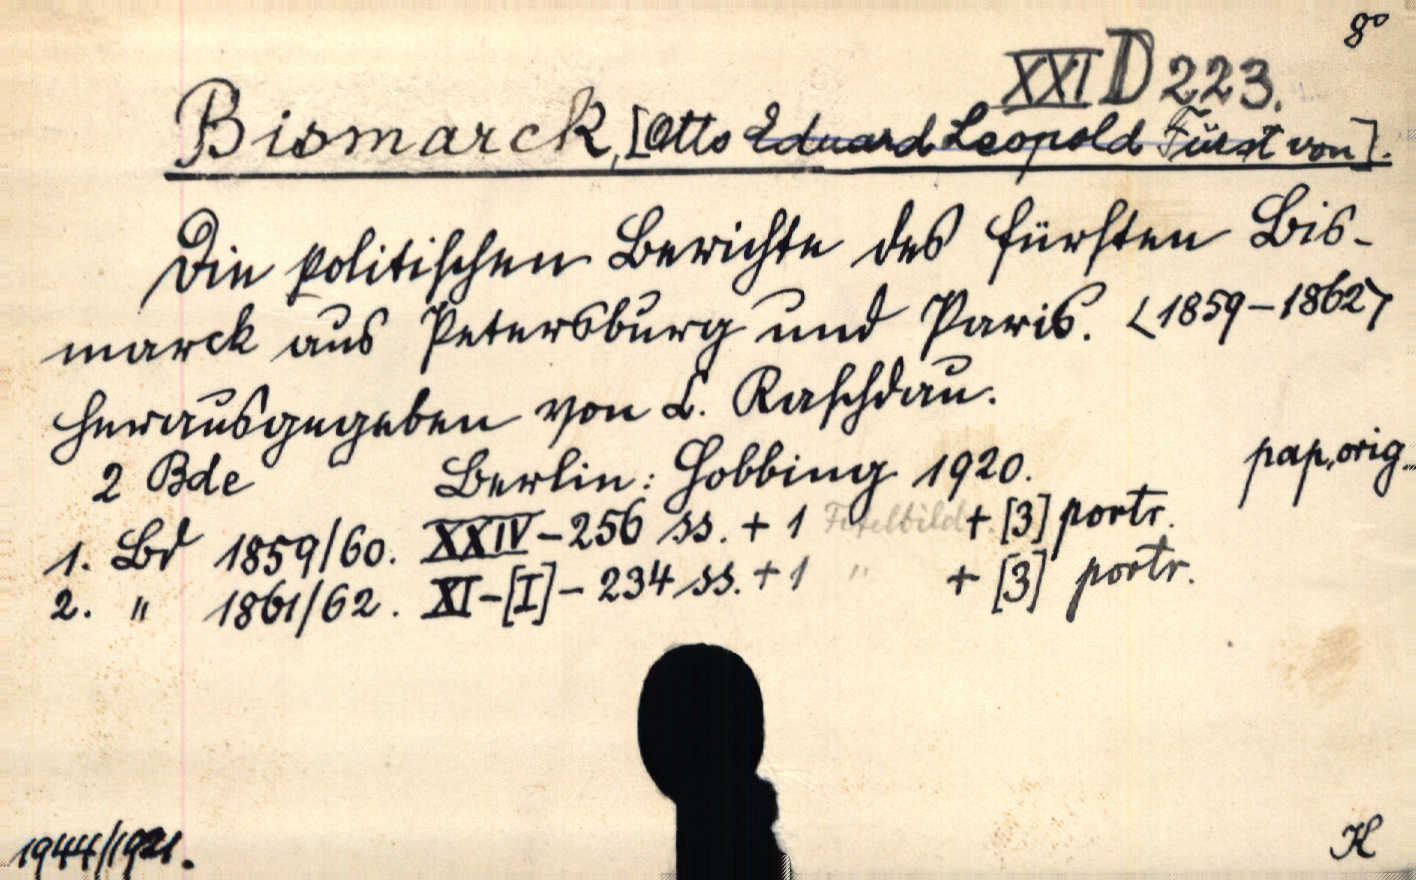 8°
XXI D 223.
Bismarck, [Otto Eduard Leopold Fürst von].
Die politischen Berichte des Fürsten Bis-
marck aus Petersburg und Paris. <1859–1862>
Herausgegeben von L. Raschdau.
2 Bde Berlin: Hobbing 1920. pap. orig.
1. Bd 1859/60. XXIV – 256 ss. + 1 Titelbild + [3] portr.
2. " 1861/62. XI – [I] – 234 ss. + 1 " + [3] portr.
1944/1921. H